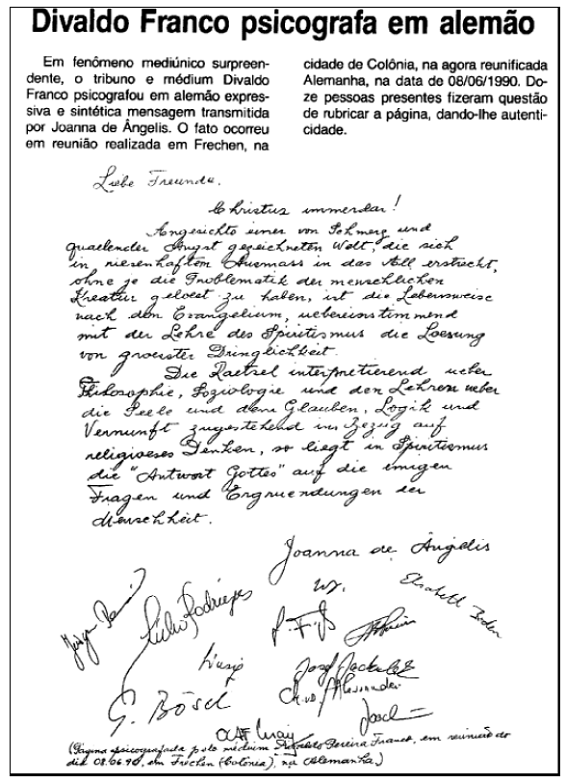 Divaldo Franco psicografa em alemão
Em fenômeno mediúnico surpreen-
dente, o tribuno e médium Divaldo
Franco psicografou em alemão expres-
siva e sintética mensagem transmitida
por Joanna de Ângelis. O fato ocorreu
em reunião realizada em Frechen, na
cidade de Colônia, na agora reunificada
Alemanha, na data de 08/06/1990. Do-
ze pessoas presentes fizeram questão
de rubricar a página, dando-lhe autenti-
cidade.
Liebe Freunde.
Christus immerdar!
Angesichts einer von Schmerz und
quaelender Angst gezeichneten Welt, die sich
in riesenhaftem Ausmass in das All erstreckt,
ohne je die Problematik der menschlichen
Kreatur geloest zu haben, ist die Lebensweise
nach dem Evangelium, uebereinstimmend
mit der Lehre des Spiritismus die Loesung
von groesster Dringlichkeit.
Die Raetsel interpretierend ueber
Philosophie, Soziologie und den Lehren ueber
die Seele und dem Glauben, Logik und
Vernunft zugestehend in Bezug auf
religioeses Denken, so liegt in Spiritismus
die "Antwort Gottes" auf die
Fragen und Ergruendungen der
Menschheit.
Joanna de Ângelis
Elisabeth
Rodrigues
Josef
G. Bösch
(Página psicografada pelo médium Divaldo Pereira Franco, em reunião do
dia 08.06.90, em Frechen (Colônia), na Alemanha.)